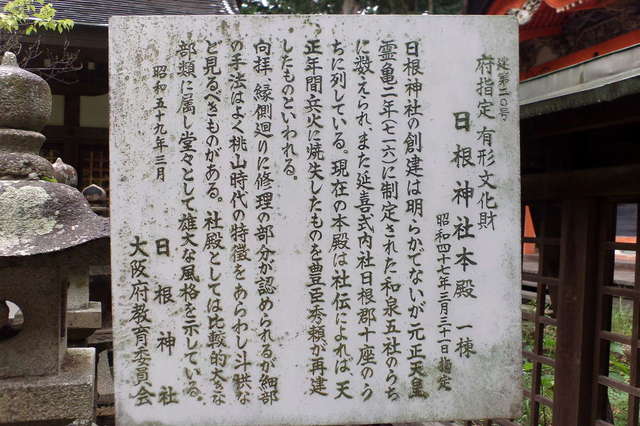 建第二〇号
府指定有形文化財
日根神社本殿 一棟
昭和四十七年三月三十一日指定
日根神社の創建は明らかでないが元正天皇
霊亀二年(七一六)に制定された和泉五社のうち
に数えられ、また延喜式内社日根郡十座のう
ちに列している。現在の本殿は社伝によれば天
正年間兵火に焼失したものを豊臣秀頼が再建
したものといわれる。
向拝、縁側廻りに修理の部分が認められるが細部
の手法はよく桃山時代の特徴をあらわし斗栱な
ど見るべきものがある。社殿としては比較的大きな
部類に属し堂々として雄大な風格を示している。
昭和五十九年三月
日根神社
大阪府教育委員会